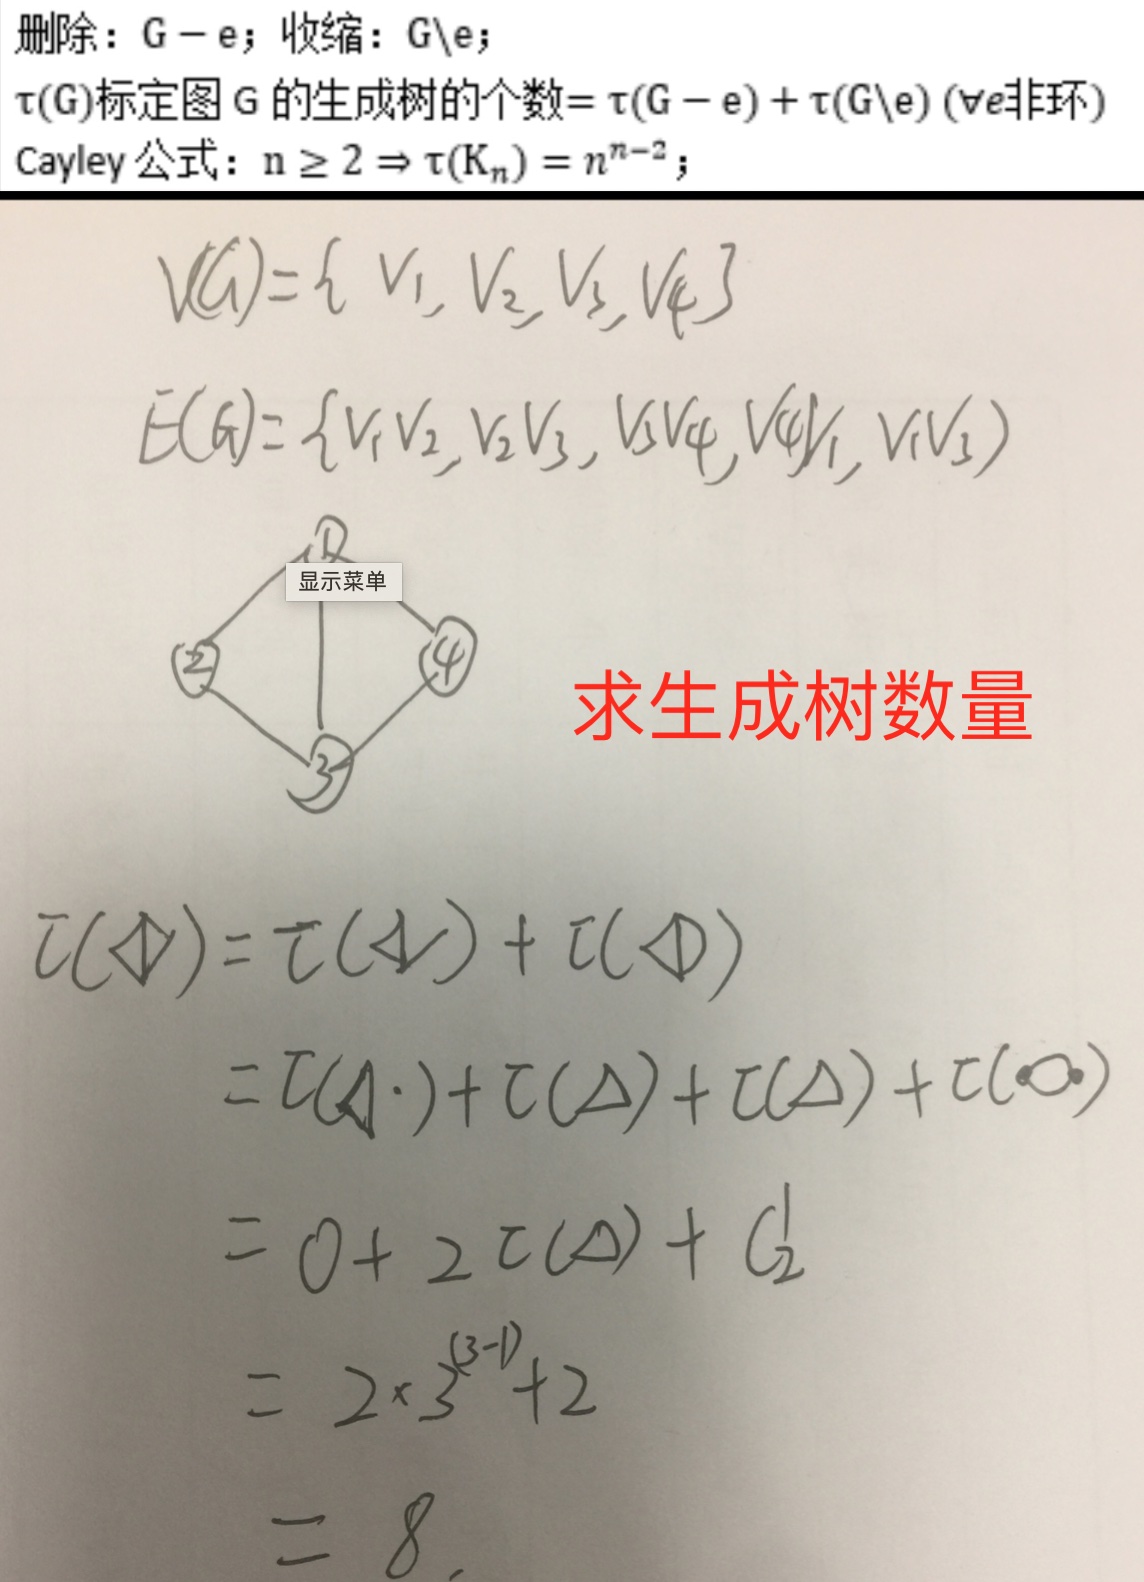 删除：G − e；收缩：G\e；
τ(G)标定图 G 的生成树的个数= τ(G − e) + τ(G\e) (∀e非环)
Cayley 公式：n ≥ 2 ⇒ τ(Kₙ) = nⁿ⁻²；
V(G)={ V₁, V₂, V₃, V₄}
E(G)={V₁V₂, V₂V₃, V₃V₄, V₄V₁, V₁V₃)
1
显示菜单
2
4
求生成树数量
3
τ( ) = τ( ) + τ( )
= τ( ) + τ(△) + τ(△) + τ( )
= 0 + 2 τ(△) + C₂¹
= 2 × 3⁽³⁻¹⁾ + 2
= 8.